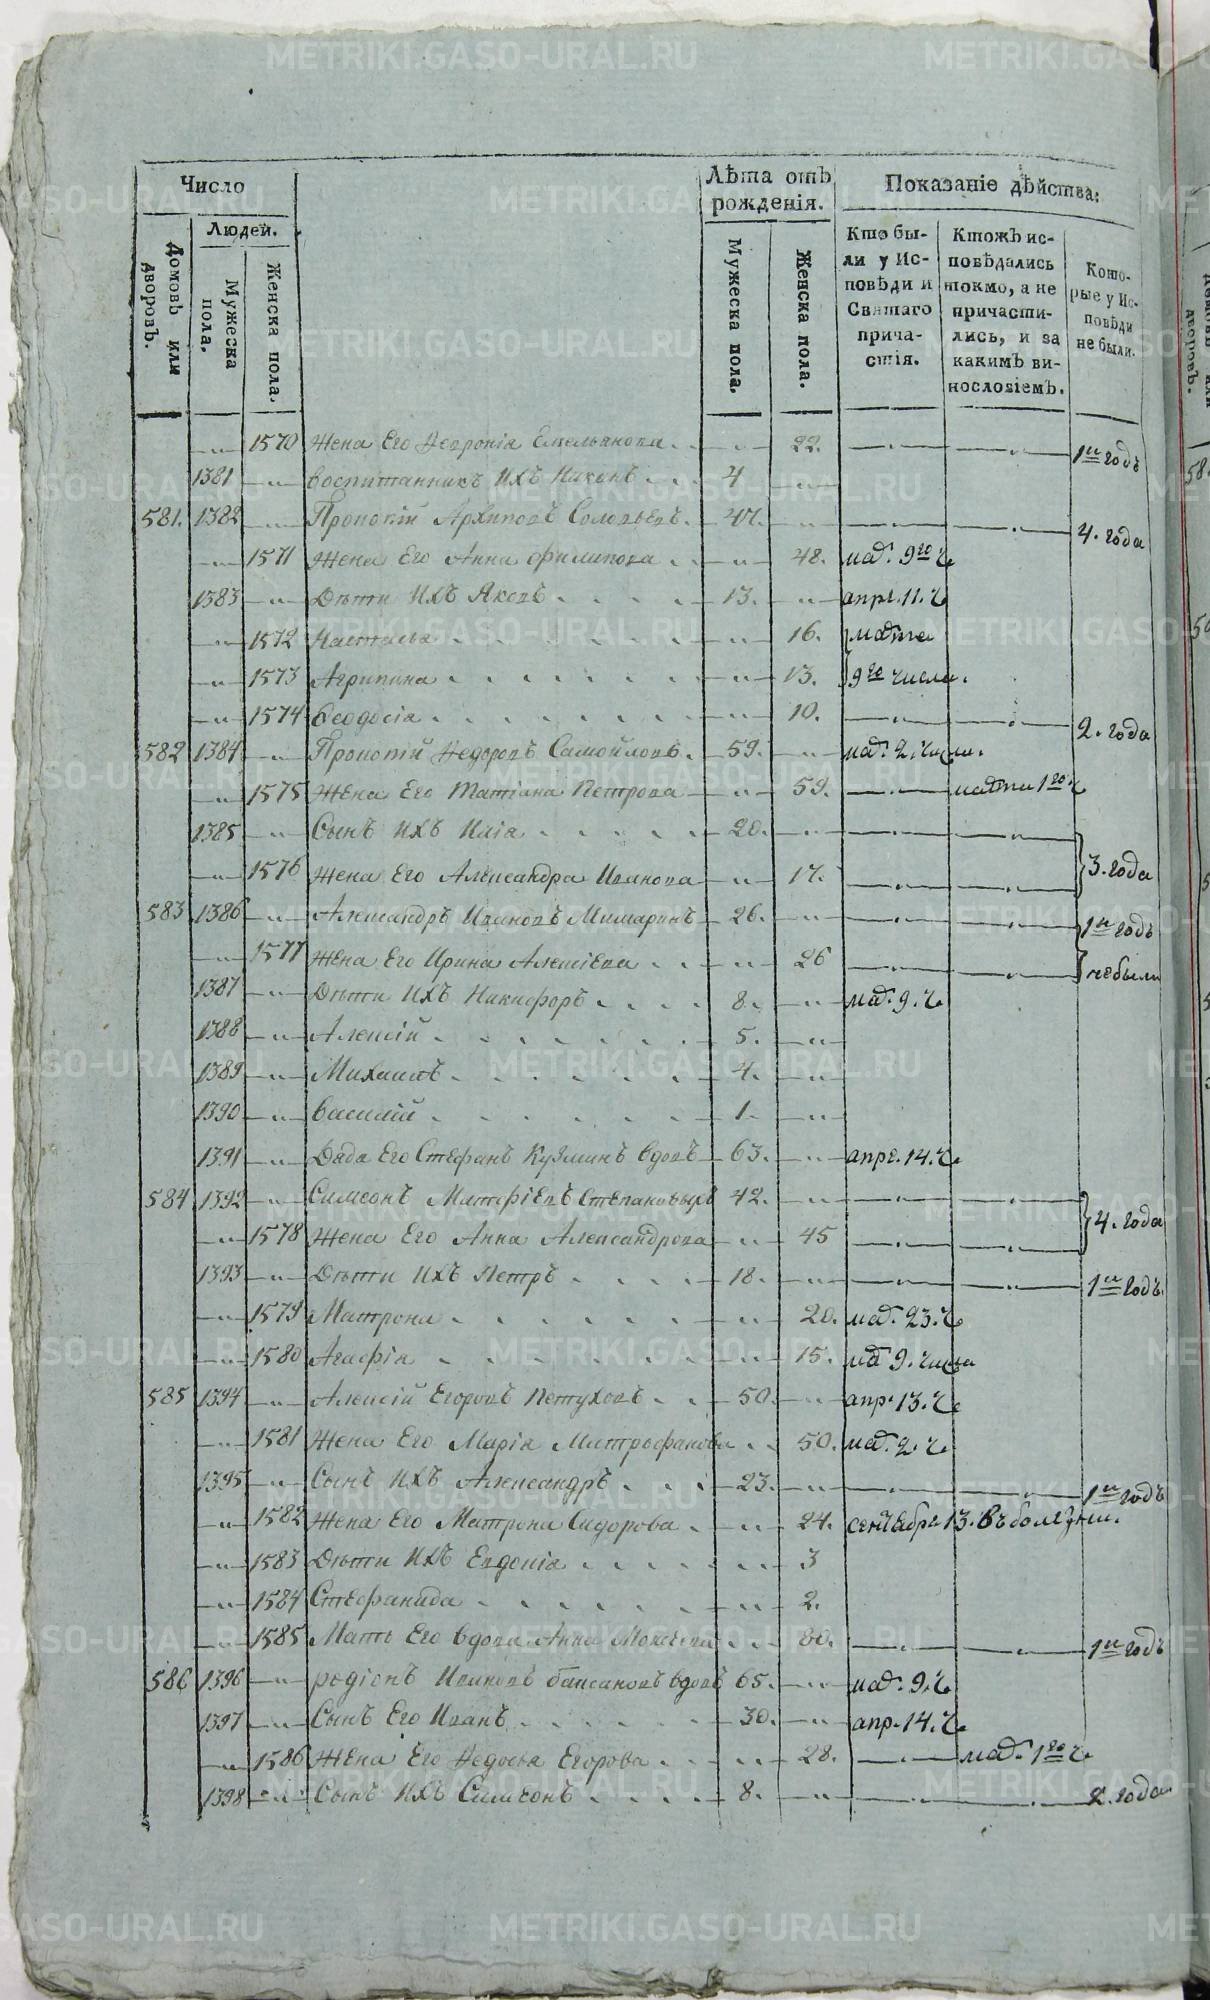 Число
Людей.
Домовъ или дворовъ.
Мужеска пола.
Женска пола.
Лѣта отъ рожденія.
Мужеска пола.
Женска пола.
Показаніе дѣйства:
Кто бы-
ли у Ис-
повѣди и
Святаго
прича-
стія.
Ктожъ ис-
повѣдались
токмо, а не
причасти-
лись, и за
какимъ ви-
нословіемъ.
Кото-
рые у Ис-
повѣди
не были.
1570 Жена Его Февронія Емельянова 22. 1й годъ
1381 воспитанникъ ихъ Никонъ 4
581. 1382 Прокопій Архиповъ Соловьевъ 47. 4. года
1571 Жена Его Анна Филипова 48. мар. 9го ч.
1383 Дѣти ихъ Яковъ 13. апре. 11. ч.
1572 Настасья 16. марта
1573 Агрипина 13. 9го числа.
1574 Ѳеодосія 10. 2. года
582 1384 Прокопій Федоровъ Самойловъ 59. мар. 2. числа.
1575 Жена Его Татіана Петрова 59. марта 1го ч.
1385 Сынъ ихъ Илія 20.
1576 Жена Его Александра Иванова 17. 3. года
583 1386 Александръ Ивановъ 26. 1й годъ
1577 Жена Его Ирина Алексіева 26 небыли
1387 Дѣти ихъ Никифоръ 8. мар. 9. ч.
1388 Алексій 5.
1389 Михаилъ 4.
1390 василій 1.
1391 Дядя Его Стефанъ Кузминъ вдовъ 63. апре. 14. ч.
584 1392 Симеонъ Матфіевъ Степановыхъ 42.
1578 Жена Его Анна Александрова 45 4. года
1393 Дѣти ихъ Петръ 18. 1й годъ.
1579 Матрона 20. мар. 23. ч.
1580 Агафія 15. мар. 9. числа
585 1394 Алексій Егоровъ Петуховъ 50. апр. 13. ч.
1581 Жена Его Марія Митрофанова 50. мар. 2. ч.
1395 Сынъ ихъ Александръ 23. 1й годъ
1582 Жена Его Матрона Сидорова 24. сентебре. 13. Въ болезни.
1583 Дѣти ихъ Евдокія 3
1584 Стефанида 2.
1585 Мать Его вдова Анна Мокеева 80. 1й годъ
586 1396 родіонъ Ивановъ вдовъ 65. мар. 9. ч.
1397 Сынъ Его Иванъ 30. апр. 14. ч.
1586 Жена Его Федосья Егорова 28. мар. 1го ч.
1398 Сынъ ихъ Симеонъ 8. 2. года
METRIKI.GASO-URAL.RU